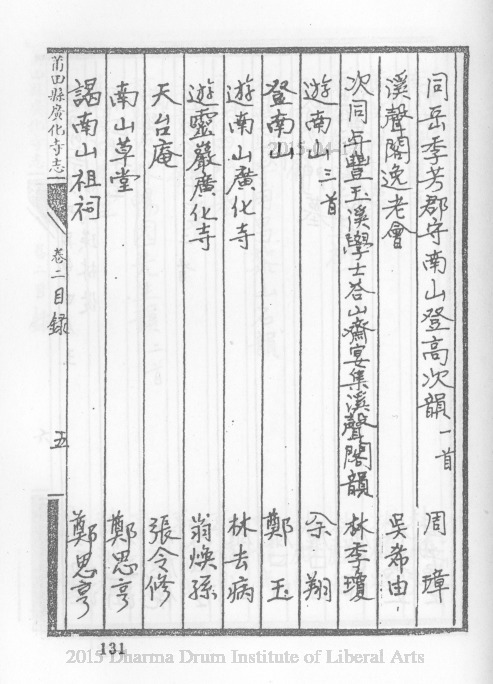 同岳季芳郡守南山登高次韻一首 周璋
溪聲閣逸老會 吳希由
次同年豐玉溪學士荅山齋宴集溪聲閣韻 林季瓊
遊南山三首 余翔
登南山 鄭玉
遊南山廣化寺 林去病
遊靈巖廣化寺 翁煥孫
天台庵 張令修
南山草堂 鄭思亨
謁南山祖祠 鄭思亨
莆田縣廣化寺志 卷二目録 五
131
2015 Dharma Drum Institute of Liberal Arts